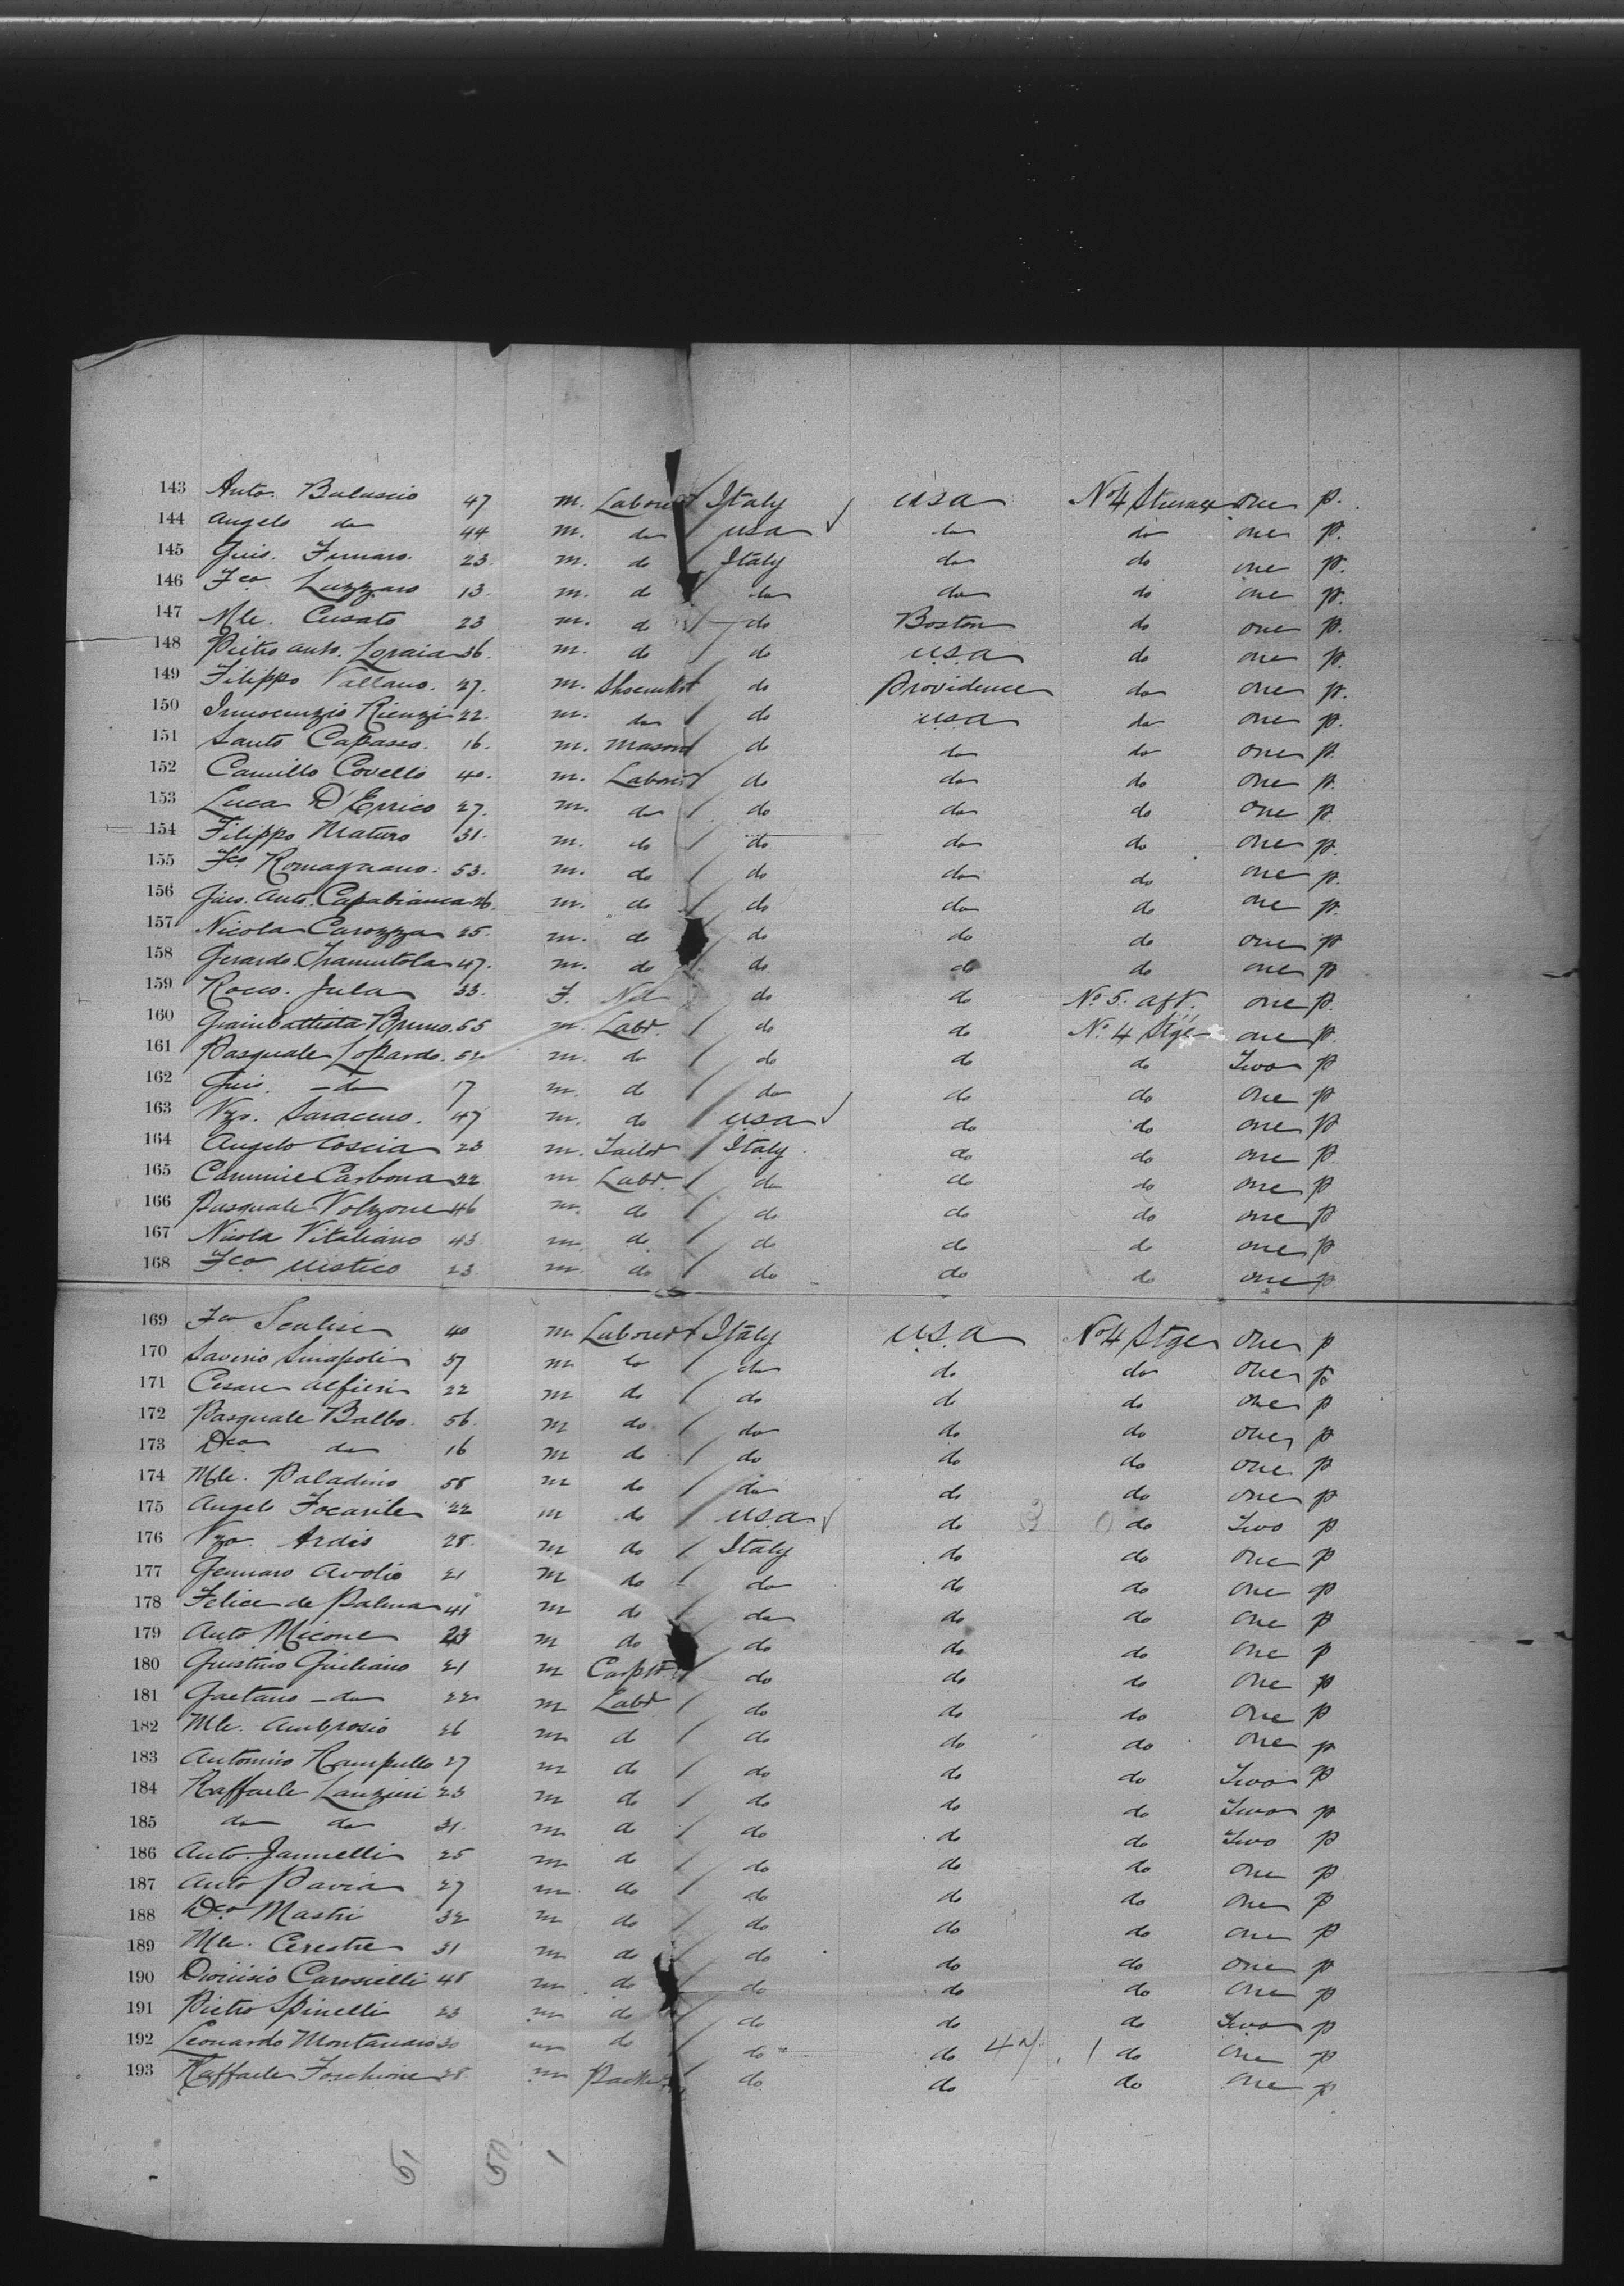 143 Anto. Balascio 47 m. Labourer Italy usa No 4 Steerage one p.
144 Angelo do 44 m. do usa do do one p.
145 Guis. Fumaro. 23. m. do Italy do do one p.
146 Fco Luzzaro 13. m. do do do do one p.
147 Mle. Cusato 23 m. do do Boston do one p.
148 Pietro Anto. Loraia 36. m. do do U.S.A do one p.
149 Filippo Vallano. 27. m. Shoemkr do Providence do one p.
150 Innocenzio Rienzi 22. m. do do usa do one p.
151 Santo Capasso. 16. m. Mason do do do one p.
152 Camillo Covello 40. m. Labourer do do do one p.
153 Luca D'Errico 27. m. do do do do one p.
154 Filippo Maturo 31. m. do do do do one p.
155 Fco Romagnano. 53. m. do do do do one p.
156 Guis. Anto. Capabianca 26. m. do do do do one p.
157 Nicola Carozza 25. m. do do do do one p
158 Gerardo Tramutola 47. m. do do do do one p
159 Rocco. Jula 33. F. Nil do do No 5. aft. one p.
160 Giambattista Bruno. 55 m. Labr. do do No. 4 Stge one p.
161 Pasquale Lopardo. 52 m. do do do do Two p
162 Guis. - do 17 m. do do do do one p
163 Vzo. Saraceno. 47 m. do usa do do one p
164 Angelo Coscia 23 m. Tailor Italy do do one p.
165 Carmine Carbona 22 m. Labr. do do do one p
166 Pasquale Volzone 46 m. do do do do one p
167 Nicola Vitaliano 43. m. do do do do one p
168 Fco Mistico 23. m. do do do do one p
169 Fco Scalise 40 m Labourer Italy U.S.A No 4 Stge one p
170 Saverio Sinapoli 37 m do do do do one p
171 Cesare Alfieri 22 m do do do do one p
172 Pasquale Balbo. 56. m do do do do one p
173 Dco do 16 m do do do do one p
174 Mle. Paladino 58 m do do do do one p
175 Angelo Focarile 22 m do usa do do Two p
176 Vzo. Ardis 28. m do Italy do do one p
177 Gennaro Avolio 21 m do do do do one p
178 Felice de Palma 41 m do do do do one p
179 Anto Micone 23 m do do do do one p
180 Giustino Giuliano 21 m Carptr. do do do one p
181 Gaetano - do 22 m Labr do do do one p
182 Mle. Ambrosio 26 m do do do do one p
183 Antonino Rampullo 27 m do do do do Two p
184 Raffaele Lanzieri 23 m do do do do Two p
185 do do 31. m do do do do Two p
186 Anto. Jannelli 25 m do do do do one p
187 Anto Pavia 27 m do do do do one p
188 Dco Mastri 32 m do do do do one p
189 Mle. Cerestre 31 m do do do do one p
190 Dionisio Carosielli 48 m do do do do one p
191 Pietro Spinelli 23 m do do do do Two p
192 Leonardo Montanaro 30 m do do do 47. 1 do one p
193 Raffaele Foschione 28 m do do do one p
51 50 1